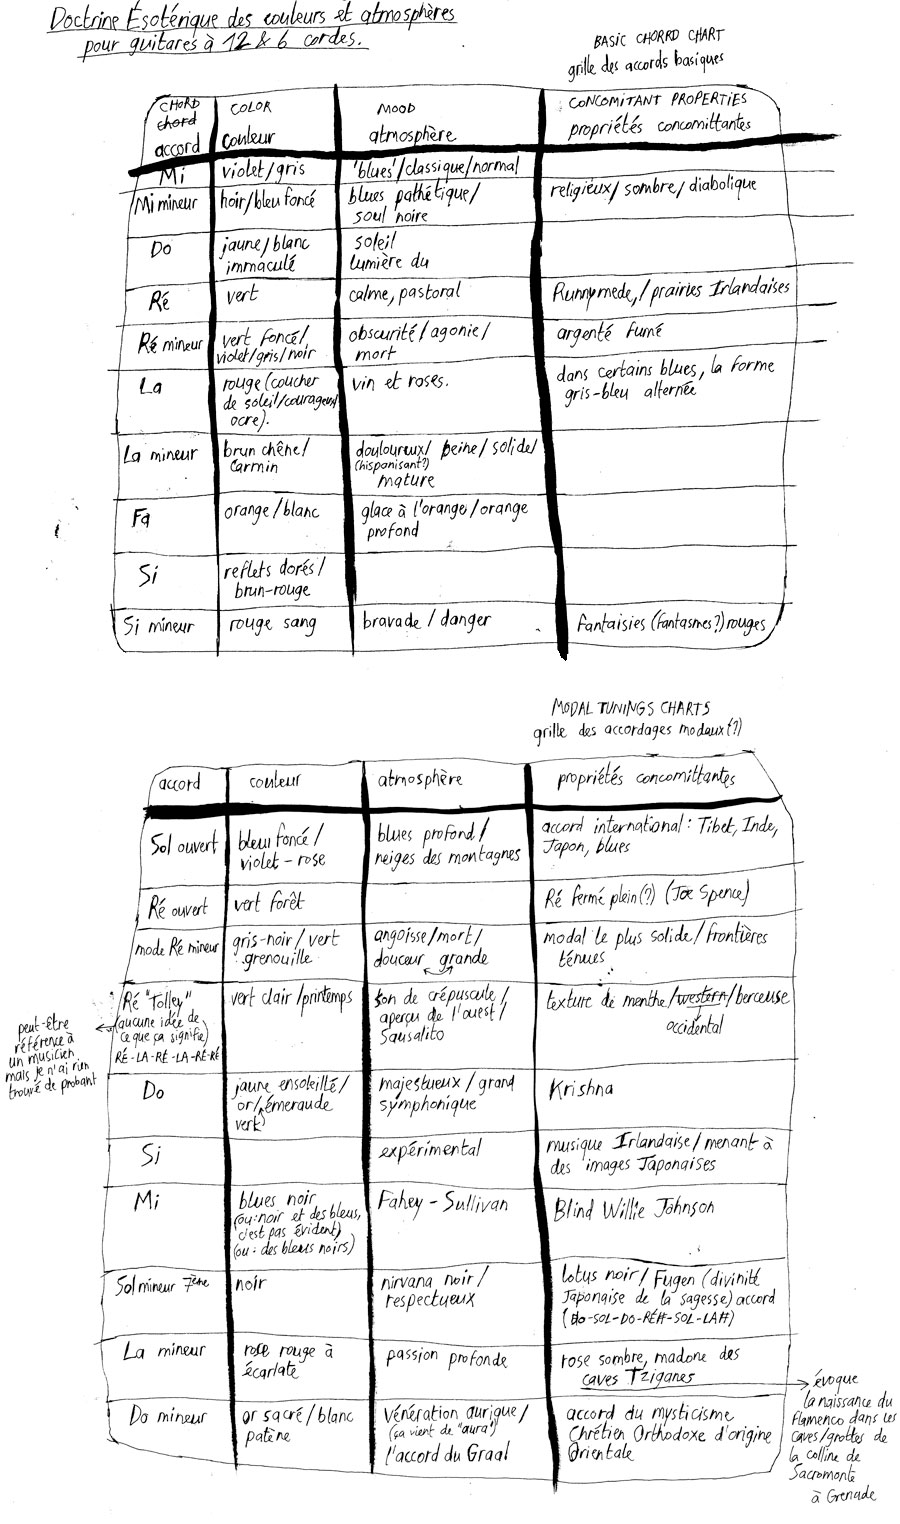 Doctrine Ésotérique des couleurs et atmosphères
pour guitares à 12 & 6 cordes.
BASIC CHORRD CHART
grille des accords basiques
CHORD
chord
accord
COLOR
couleur
MOOD
atmosphère
CONCOMITANT PROPERTIES
propriétés concomittantes
Mi
violet/gris
'blues'/classique/normal
Mi mineur
noir/bleu foncé
blues pathétique/
soul noire
religieux/sombre/diabolique
Do
jaune/blanc
immaculé
soleil
lumière du
Ré
vert
calme, pastoral
Runnymede,/prairies Irlandaises
Ré mineur
vert foncé/
violet/gris/noir
obscurité/agonie/
mort
argenté fumé
La
rouge (coucher
de soleil/courageux/
ocre).
vin et roses.
dans certains blues, la forme
gris-bleu alternée
La mineur
brun chêne/
carmin
douloureux/peine/solide/
(hispanisant?)
mature
Fa
orange/blanc
glace à l'orange/orange
profond
Si
reflets dorés/
brun-rouge
Si mineur
rouge sang
bravade/danger
fantaisies (fantasmes?) rouges
MODAL TUNINGS CHARTS
grille des accordages modaux(?)
accord
couleur
atmosphère
propriétés concomittantes
Sol ouvert
bleu foncé/
violet-rose
blues profond/
neiges des montagnes
accord international: Tibet, Inde,
Japon, blues
Ré ouvert
vert forêt
Ré fermé plein(?) (Joe Spence)
mode Ré mineur
gris-noir/vert
grenouille
angoisse/mort/
douceur grande
modal le plus solide/frontières
ténues
Ré "Tolley"
(aucune idée de
ce que ça signifie)
RÉ-LA-RÉ-LA-RÉ-RÉ
peut-être
référence à
un musicien,
mais je n'ai rien
trouvé de probant
vert clair/printemps
son de crépuscule/
aperçu de l'ouest/
Sausalito
texture de menthe/western/berceuse
occidental
Do
jaune ensoleillé/
or/émeraude
vert)
majestueux/grand
symphonique
Krishna
Si
expérimental
musique Irlandaise/menant à
des images Japonaises
Mi
blues noir
(ou: noir et des bleus,
c'est pas évident)
(ou: des bleus noirs)
Fahey-Sullivan
Blind Willie Johnson
Sol mineur 7ème
noir
nirvana noir/
respectueux
lotus noir/Fugen (divinité
Japonaise de la sagesse) accord
(do-SOL-DO-RÉ#-SOL-LA#)
La mineur
rose rouge à
écarlate
passion profonde
rose sombre, madone des
caves Tziganes
évoque
la naissance du
Flamenco dans les
caves/grottes de
la colline de
Sacromonte
à Grenade
Do mineur
or sacré/blanc
patène
vénération aurique/
(ça vient de "aura")
l'accord du Graal
accord du mysticisme
Chrétien Orthodoxe d'origine
Orientale